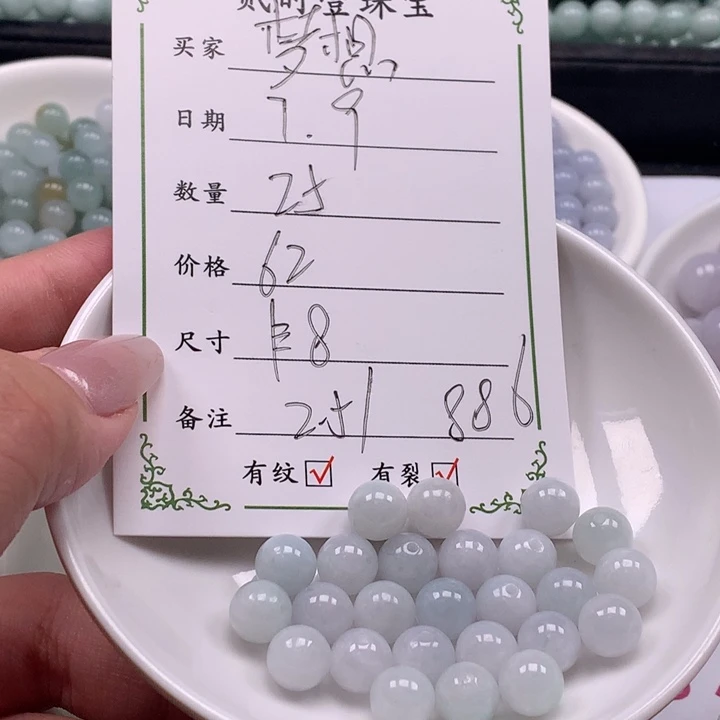 买家 梦想
日期 7.9
数量 25
价格 62
尺寸 8
备注 251 886
有纹 ☑ 有裂 ☑